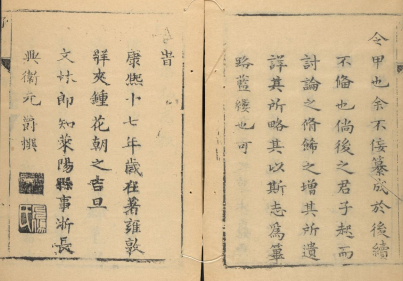 令甲也余不佞纂成於後續
不偹也倘後之君子起而
討論之脩飾之增其所遺
詳其所略其以斯志爲篳
路藍縷也可
昔
康熙十七年歲在著雍敦
牂夾鍾花朝之吉旦
文林郎知萊陽縣事浙長
興衛元爵撰